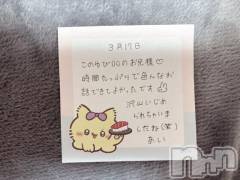 3月17日
このたび〇〇のお兄様♡
時間たっぷりで色んなお
話できてよかったです
沢山いじめ
られちゃいま
したね(笑)
あい